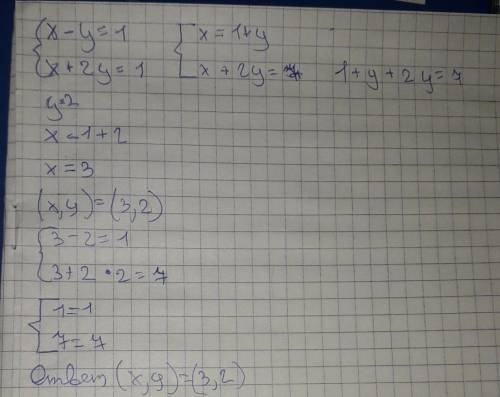 x - y = 1    x = 1 + y
x + 2y = 1    x + 2y = 7    1 + y + 2y = 7
y = 2
x = 1 + 2
x = 3
(x, y) = (3, 2)
3 - 2 = 1
3 + 2 · 2 = 7
1 = 1
7 = 7
Ответ (x, y) = (3, 2)